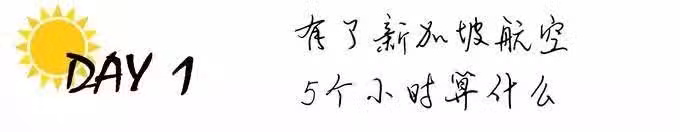 DAY 1
有了新加坡航空
5个小时算什么